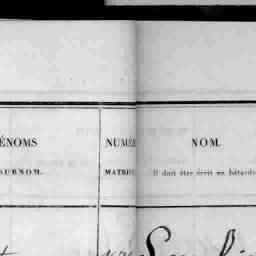 ÉNOMS
SURNOM.
NUMÉ
MATRIC
NOM.
Il doit être écrit en bâtarde